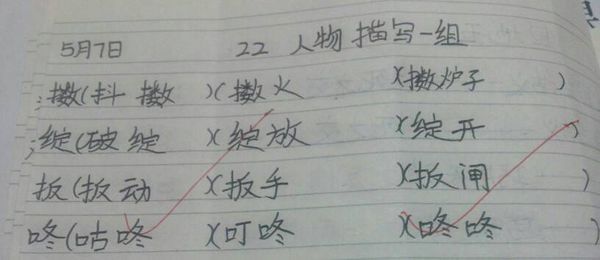 5月7日 22 人物描写一组
擞(抖擞)(擞火)(擞炉子)
绽(破绽)(绽放)(绽开)
扳(扳动)(扳手)(扳闸)
咚(咕咚)(叮咚)(咚咚)